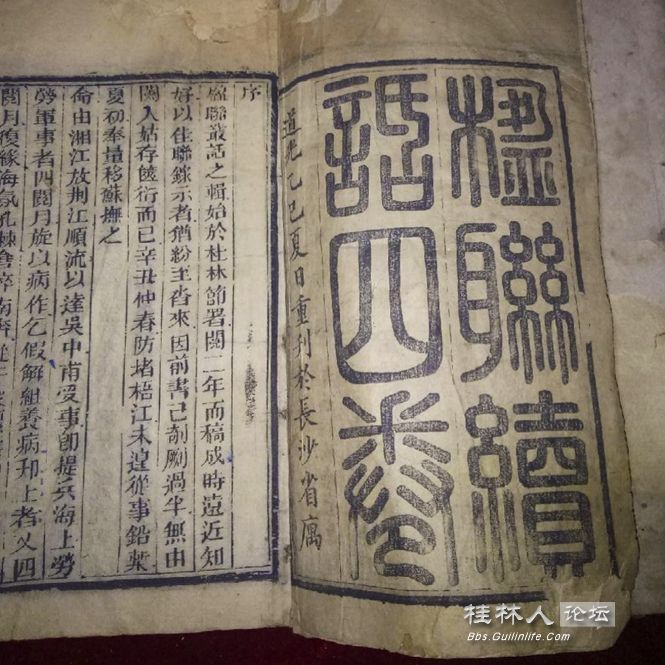 楹聯續
話四卷
道光乙巳夏日重刊於長沙省寓
序
楹聯叢話之輯始於桂林節署閱二年而稿成時遠近知
好以佳聯錄示者猶紛至沓來因前書已剞劂過半無由
闌入姑存篋衍而已辛丑仲春防堵梧江未遑從事鉛槧
夏初奉量移蘇撫之
命由湘江放荊江順流以達吳中甫受事即提兵海上勞
勞軍事者四閱月旋以病作乞假解組養病邗上者又四
閱月復緣海氛孔棘倉猝南
桂林人论坛
Bbs.Guilinlife.Com